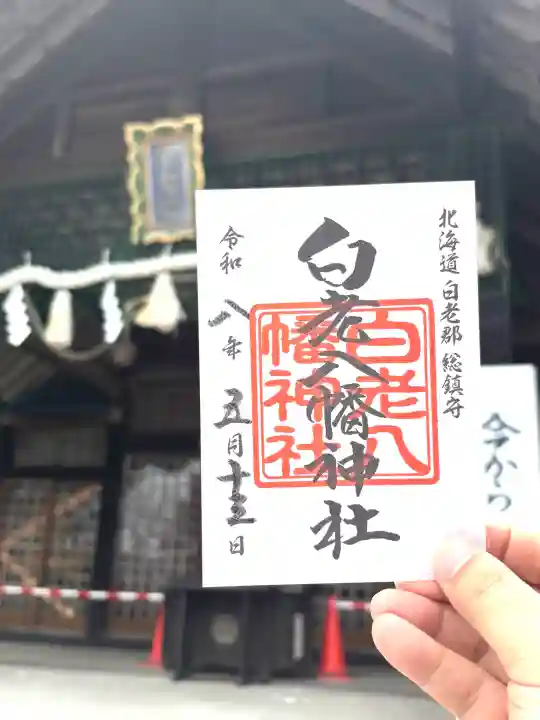 北海道 白老郡 総鎮守
白老八幡神社
白老八
幡神社
令和 八年 五月 十三日
今から